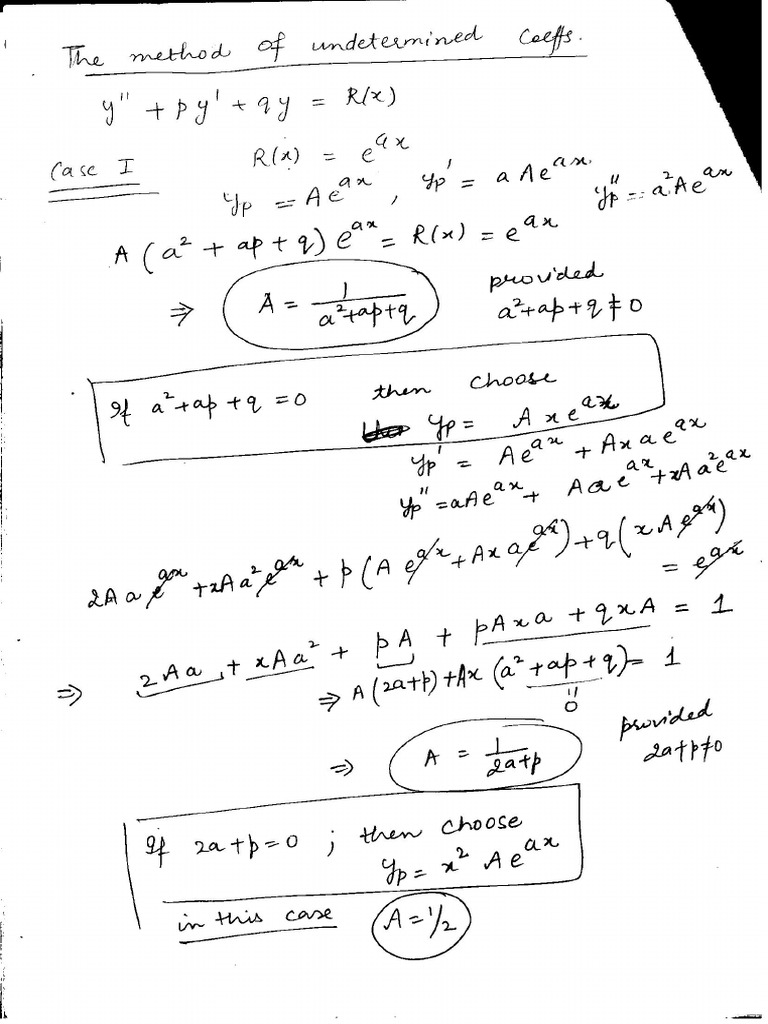 The method of undetermined Coeffs.
y'' + py' + qy = R(x)
Case I
R(x) = e^{ax}
y_p = Ae^{ax}, y_p' = aAe^{ax}. y_p'' = a²Ae^{ax}
A(a² + ap + q)e^{ax} = R(x) = e^{ax}
⇒ A = 1/(a²+ap+q) provided
a²+ap+q ≠ 0
If a²+ap+q = 0 then choose
y_p = Axe^{ax}
y_p' = Ae^{ax} + Axae^{ax}
y_p'' = aAe^{ax} + Aae^{ax} + xAa²e^{ax}
2Aae^{ax} + xAa²e^{ax} + p(Ae^{ax} + Axae^{ax}) + q(xAe^{ax})
= e^{ax}
⇒ 2Aa + xAa² + pA + pAxa + qxA = 1
⇒ A(2a+p) + Ax(a² + ap + q) = 1
0
⇒ A = 1/(2a+p) provided
2a+p≠0
If 2a+p=0 ; then choose
y_p = x² Ae^{ax}
in this case A = 1/2